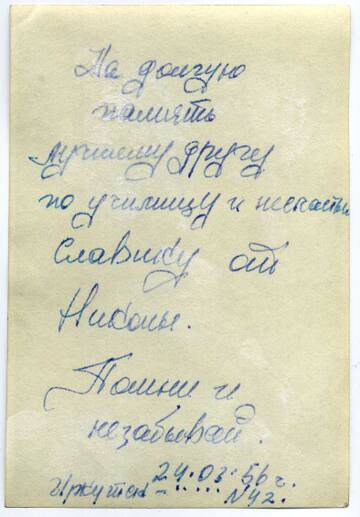 На долгую
память
лучшему другу
по училищу и несчастью
Славику от
Николы.
Помни и
незабывай.
Иркутск 24.03.56 г.
N42.